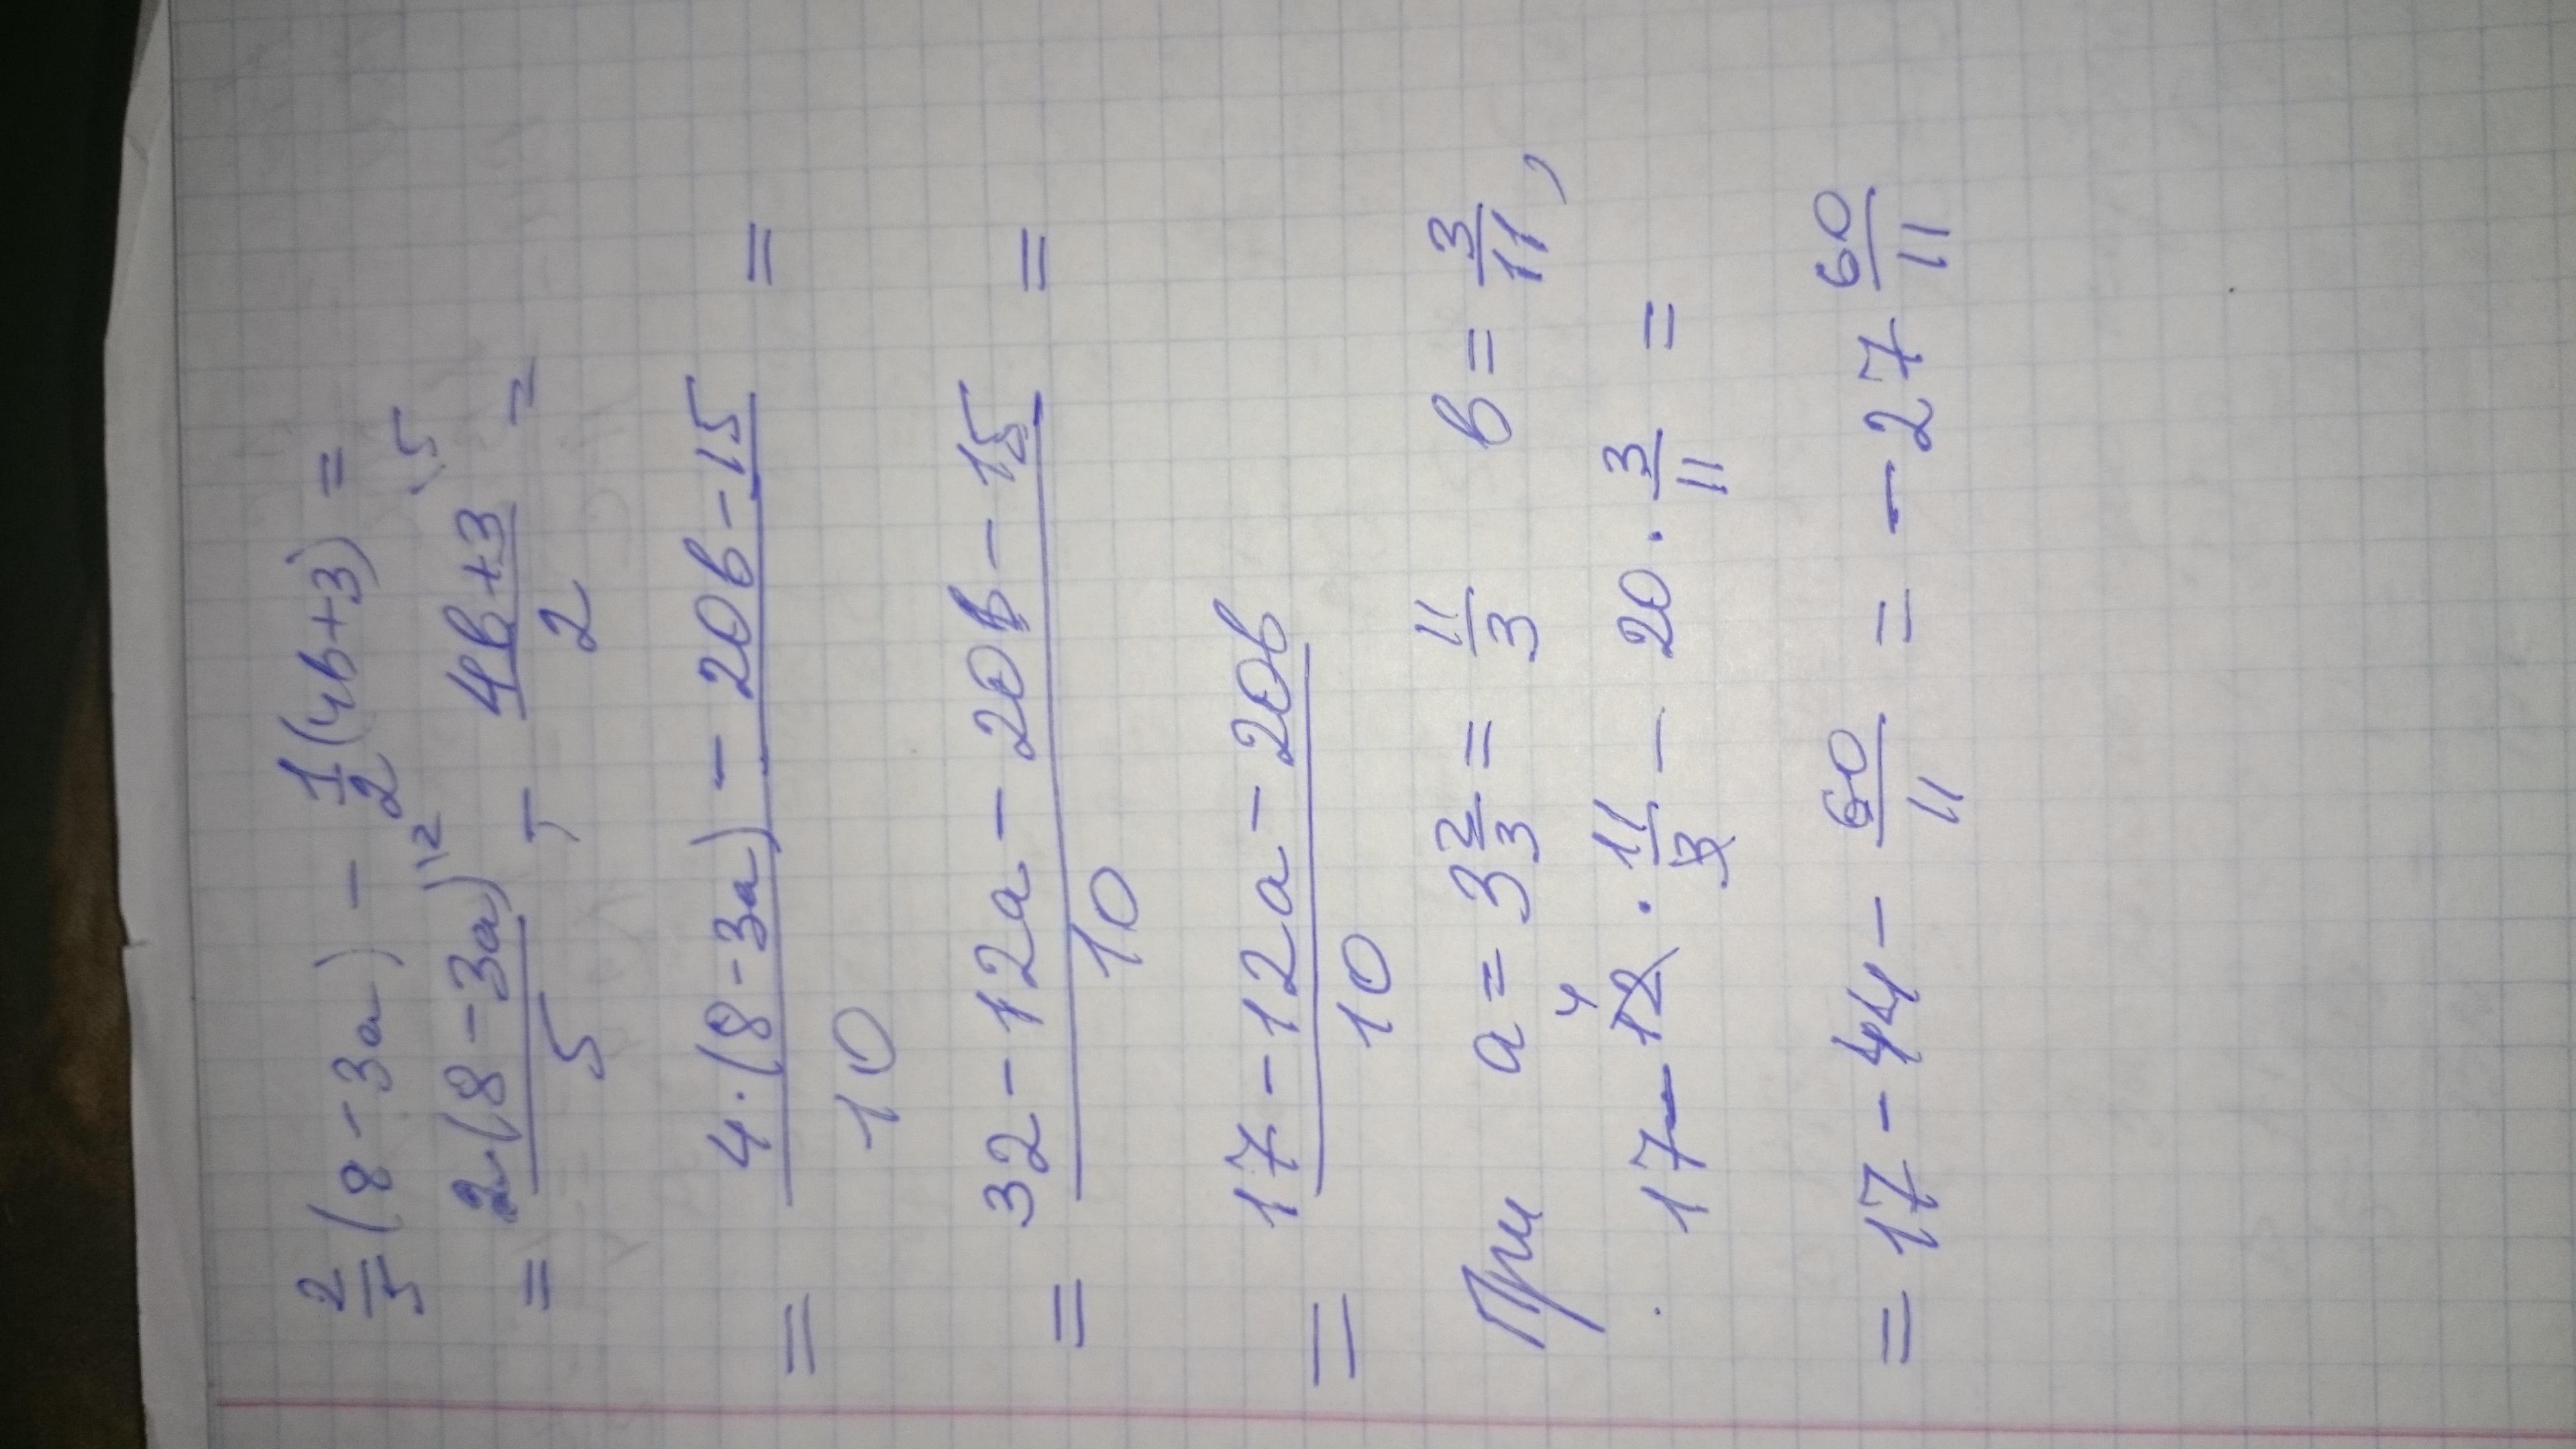 2/5 (8 - 3a) - 1/2 (4b+3) =
= 2·(8 - 3a)\2 / 5 - 4b+3\5 / 2 =
= 4·(8 - 3a) - 20b - 15 / 10 =
= 32 - 12a - 20b - 15 / 10 =
= 17 - 12a - 20b / 10
При a = 3 2/3 = 11/3 b = 3/11,
17 - 12 4 · 11/3 - 20 · 3/11 =
= 17 - 44 - 60/11 = - 27 60/11